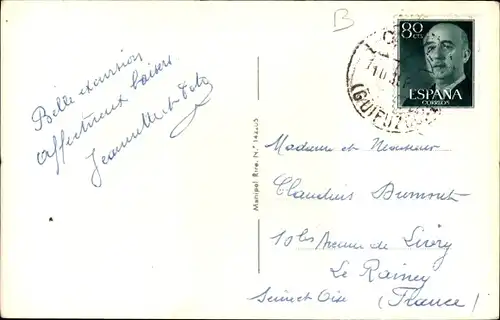 B
80 cts
ESPAÑA
CORREOS
(GUIPUZCOA)
Belle excursion
affectueux baisers
Jeannette et Toto
Manipel Rire. N.º
Madame et Monsieur
Claudius Dumont
10 bis Avenue de Livry
Le Raincy
Seine et Oise (France)